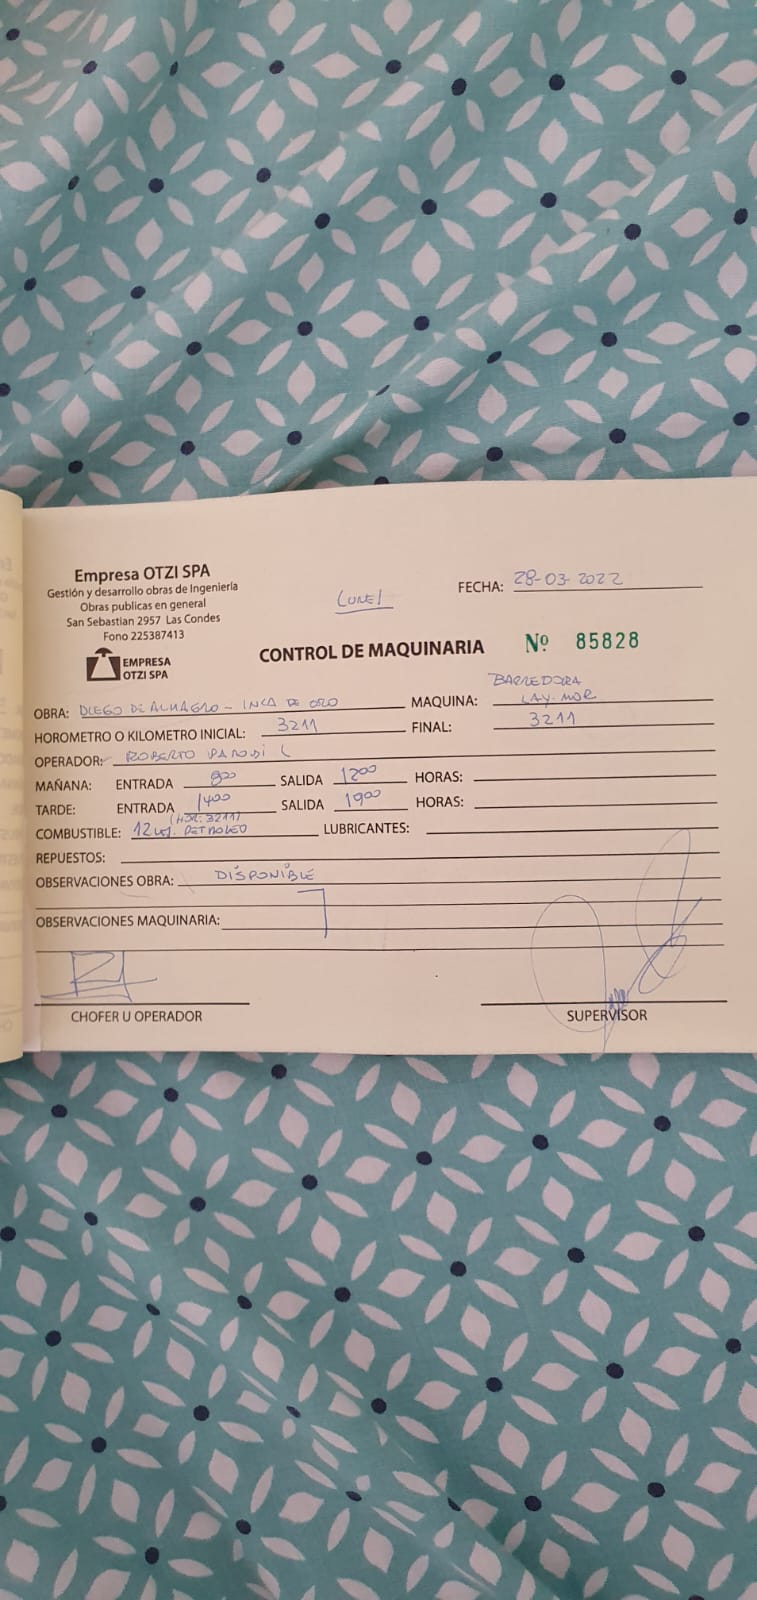 Empresa OTZI SPA
Gestión y desarrollo obras de Ingenieria
Obras publicas en general
San Sebastian 2957 Las Condes
Fono 225387413
EMPRESA
OTZI SPA
LUNES
FECHA: 28-03-2022
CONTROL DE MAQUINARIA Nº 85828
OBRA: DIEGO DE ALMAGRO - INCA DE ORO
MAQUINA: BARREDORA
LAY-MOR
HOROMETRO O KILOMETRO INICIAL: 3211 FINAL: 3211
OPERADOR: ROBERTO PARODI L
MAÑANA: ENTRADA 800 SALIDA 1200 HORAS:
TARDE: ENTRADA 1400 SALIDA 1900 HORAS:
(HOR: 3211)
COMBUSTIBLE: 12 PETROLEO LUBRICANTES:
REPUESTOS:
OBSERVACIONES OBRA: DISPONIBLE
OBSERVACIONES MAQUINARIA:
CHOFER U OPERADOR SUPERVISOR